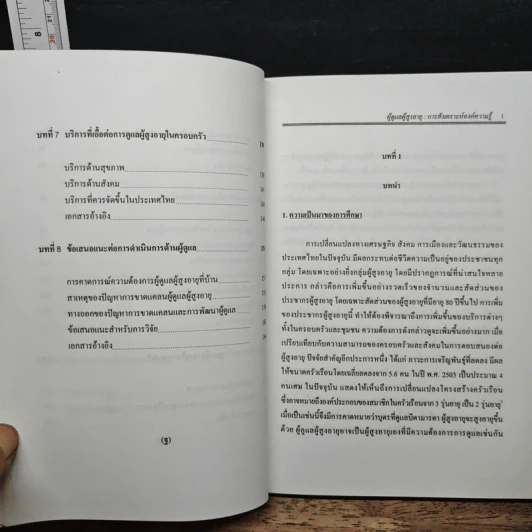 บทที่ 7 บริการที่เอื้อต่อการดูแลผู้สูงอายุในครอบครัว
บริการด้านสุขภาพ
บริการด้านสังคม
บริการที่ควรจัดขึ้นในประเทศไทย
เอกสารอ้างอิง
บทที่ 8 ข้อเสนอแนะต่อการดำเนินการด้านผู้ดูแล
การคาดการณ์ความต้องการผู้ดูแลผู้สูงอายุที่บ้าน
สาเหตุของปัญหาการขาดแคลนผู้ดูแลผู้สูงอายุ
ทางออกของปัญหาการขาดแคลนและการพัฒนาผู้ดูแล
ข้อเสนอแนะสำหรับการวิจัย
เอกสารอ้างอิง
(ฐ)
ผู้ดูแลผู้สูงอายุ : การสังเคราะห์องค์ความรู้ 1
บทที่ 1
บทนำ
1. ความเป็นมาของการศึกษา
การเปลี่ยนแปลงทางเศรษฐกิจ สังคม การเมืองและวัฒนธรรมของ
ประเทศไทยในปัจจุบัน มีผลกระทบต่อชีวิตความเป็นอยู่ของประชาชนทุก
กลุ่ม โดยเฉพาะอย่างยิ่งกลุ่มผู้สูงอายุ โดยมีปรากฏการณ์ที่น่าสนใจหลาย
ประการ กล่าวคือการเพิ่มขึ้นอย่างรวดเร็วของจำนวนและสัดส่วนของ
ประชากรผู้สูงอายุ โดยเฉพาะสัดส่วนของผู้สูงอายุที่มีอายุ 80 ปีขึ้นไป การเพิ่ม
ของประชากรผู้สูงอายุนี้ ทำให้ต้องพิจารณาถึงการเพิ่มขึ้นของบริการต่างๆ
ทั้งในครอบครัวและชุมชน ความต้องการดังกล่าวดูจะเพิ่มขึ้นอย่างมาก เมื่อ
เปรียบเทียบกับความสามารถของครอบครัวและสังคมในการตอบสนองต่อ
ผู้สูงอายุ ปัจจัยสำคัญอีกประการหนึ่ง ได้แก่ ภาวะการเจริญพันธุ์ที่ลดลง มีผล
ให้ขนาดครัวเรือนโดยเฉลี่ยลดลงจาก 5.6 คน ในปี พ.ศ. 2503 เป็นประมาณ 4
คนเศษ ในปัจจุบัน แสดงให้เห็นถึงการเปลี่ยนแปลงโครงสร้างครัวเรือน
ซึ่งอาจหมายถึงองค์ประกอบของสมาชิกในครัวเรือนจาก 3 รุ่นอายุ เป็น 2 รุ่นอายุ
เมื่อเป็นเช่นนี้จึงมีการคาดหมายว่าบุตรที่ดูแลบิดามารดา ผู้สูงอายุจะสูงอายุขึ้น
ด้วย ผู้ดูแลผู้สูงอายุอาจเป็นผู้สูงอายุเองที่มีความต้องการการดูแลเช่นกัน